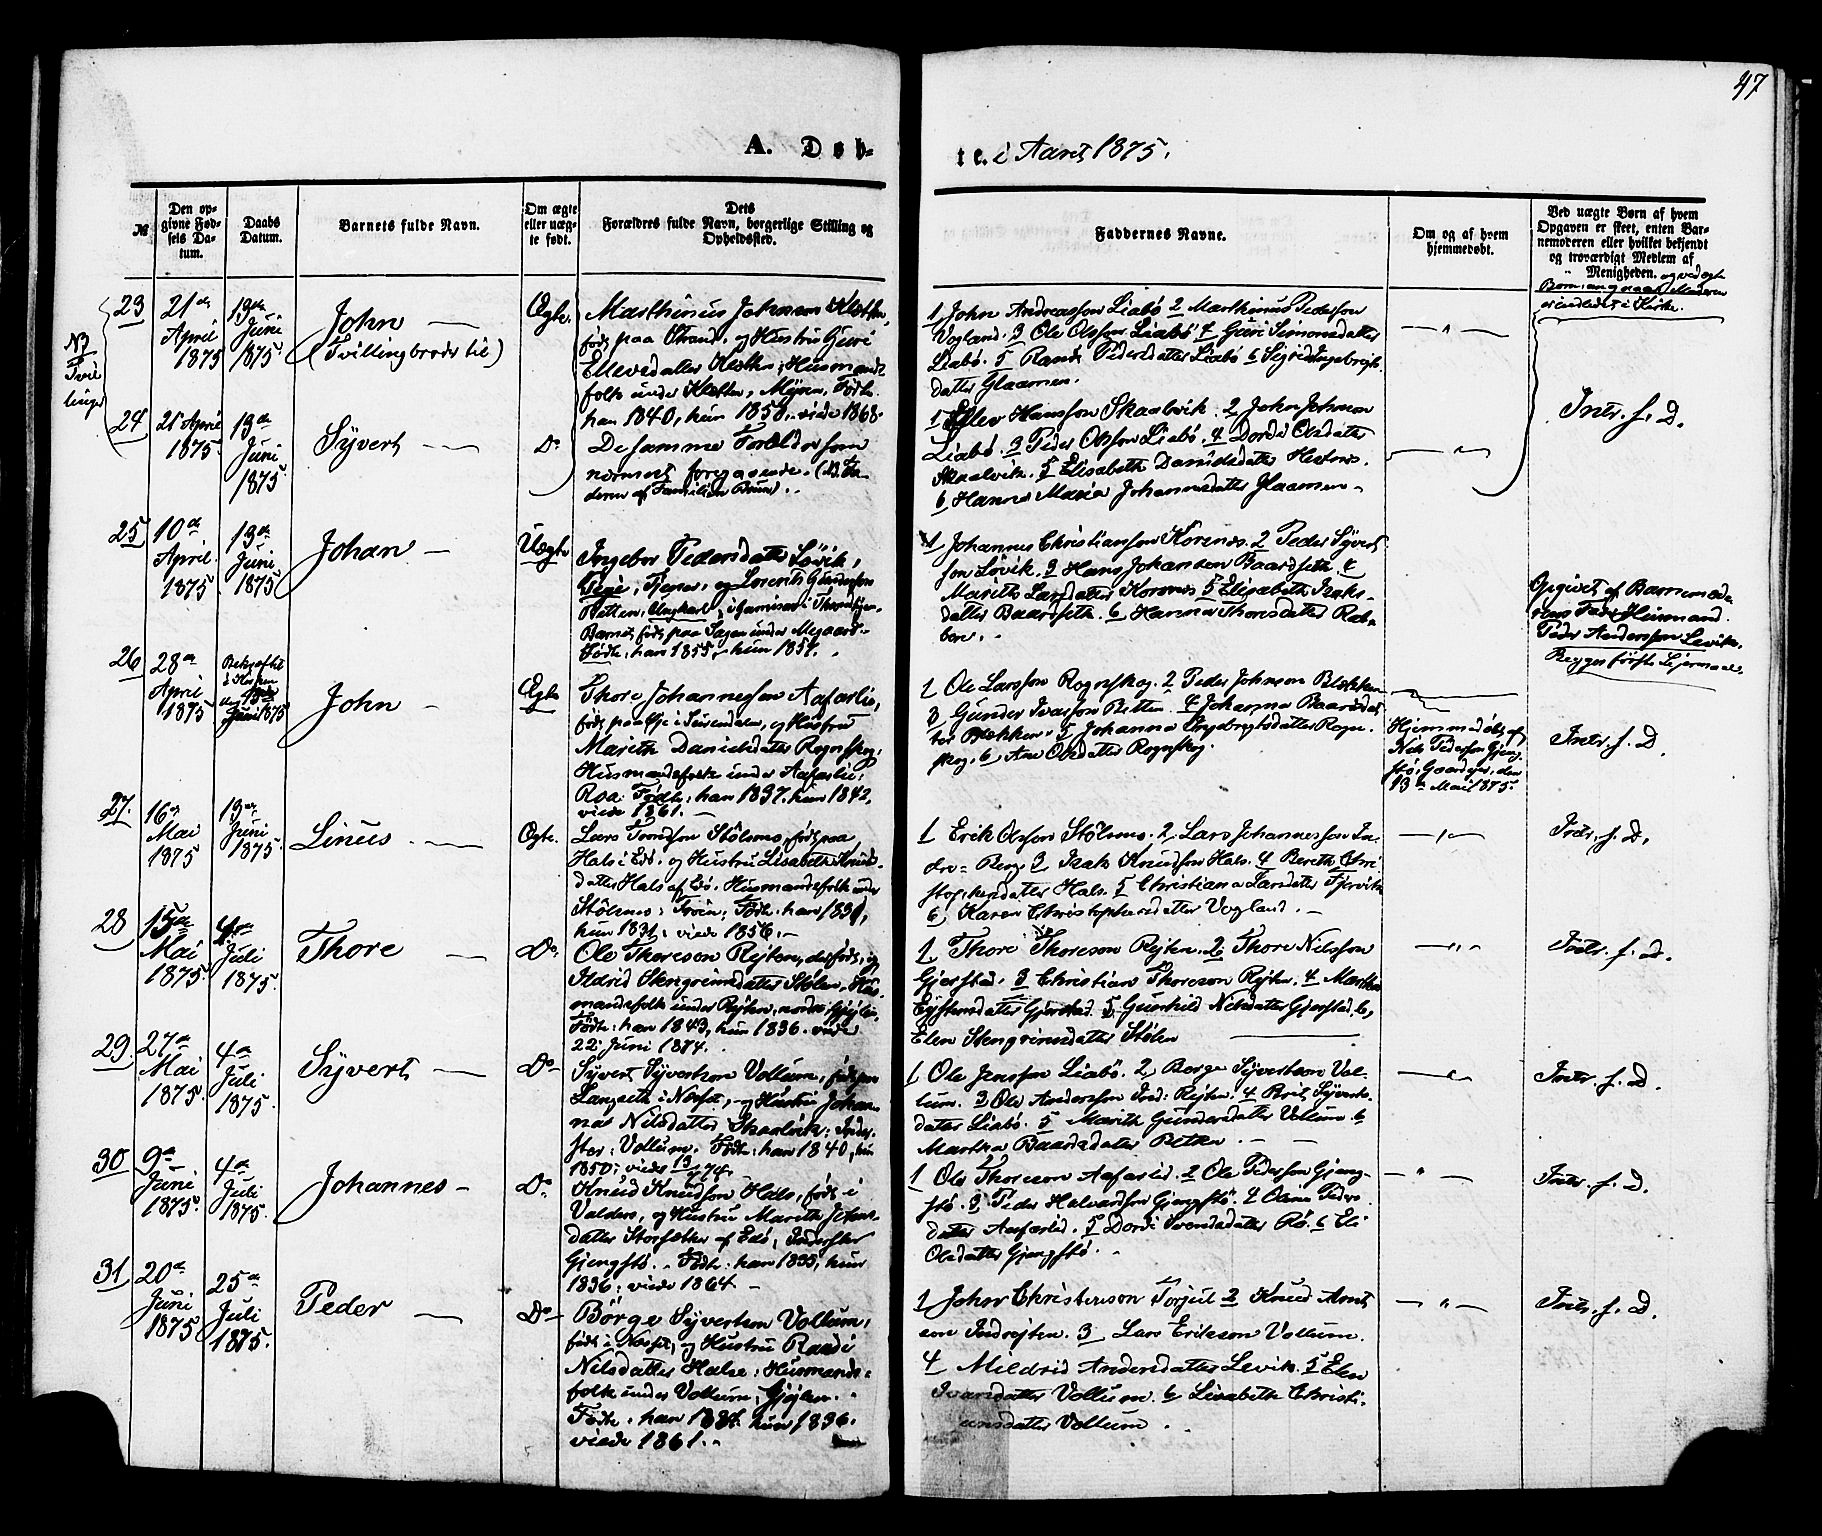 47
A. Døb-
te. i Aaret 1875.
№
Den op-
givne Fød-
sels Da-
tum.
Daabs
Datum.
Barnets fulde Navn.
Om ægte
eller uæg-
te født.
Dets
Forældres fulde Navn, borgerlige Stilling og
Opholdssted.
Faddernes Navne.
Om og af hvem
hjemmedøbt.
Ved uægte Børn af hvem
Opgaven er skeet, enten Bar-
nemoderen eller hvilket bekjendt
og troværdigt Medlem af
Menigheden. og ved ægte
Børn
Kirke.
NB
Tvil
linger
23
21de
April
1875
13de
Juni
1875.
John
(Tvillingbroder til)
Ægte.
Marthinus Johnson
født paa Strand, og Hustru Guri
Ellevsdatter Husmands
folk under Myren, Fødte
han 1840, hun 1850, viede 1868.
1 John Andreasson Liabø 2 Marthinus Pederson
Vogland. 3 Ole Olsson Liabø 4 Guri Simonsdatter
Liabø. 5 Randi Pedersdatter Liabø 6 Sigrid Ingebrigts
datter Glaamen.
24
21 April
1875.
13de
Juni
1875.
Syvert
Do
De samme Forældre som
nærmest foregaaende. (
af Familien
1 Ellev Hansson Skaalvik. 2 John Johnson
Liabø 3 Peder Olsson Liabø, 4 Dordi Olsdatter
Skaalvik. 5 Elisabeth Danielsdatter Hestnes.
6 Hanna Maria Johannesdatter Glaamen.
Intr. f. D.
25
10de
April
1875.
13de
Juni
1875.
Johan
Uægte
Ingebor Pedersdatter Løvik,
Pige, Tjener, og Lorents Gunderson
Ratten, Ungkarl, i Garnison i
Barnet født paa Sagen under Megaard.
Fødte, han 1855, hun 1854.
1 Johannes Christianson Korsnes. 2 Peder Syvert
son Løvik. 3 Hans Johanson Baardseth. 4
Marith Larsdatter Korsnes 5 Elisabeth Isaks-
datter Baardseth. 6 Hanna Thoresdatter
Opgivet af Barnemode
rens Fader Huusmand
Peder Anderson Levik.
Begges første Leiermaal.
26
28de
April
1875
Bekræftet
i Kirken
Juni 1875
John
Ægte
Thore Johanneson Aafarlie,
født paa i Surendalen, og Hustru
Marith Danielsdatter Rognskog.
Husmandsfolk under Aafarlie,
Roa. Fødte: han 1837, hun 1842,
viede 1861.
1 Ole Larsson Rognskog. 2 Peder Johnson Blekken
3 Gunder Ivarson Ratten. 4 Johanna Baardsdat
ter Blekken. 5 Johanna Ingebrigtsdatter Rogn
skog. 6 Ane Olsdatter Rognskog.
Hjemmedøbt af
Nils Pederson Gjeng
stø, Gaardejer, den
13de Mai 1875.
Intr. f. D.
27.
16de
Mai
1875
13de
Juni
1875.
Linus
Ægte.
Lars Stølsnes, født paa
Hals i Edø. og Hustru Lisabeth Knuds-
datter Hals af Edø. Husmandsfolk under
Stølsnes. Fødte: han 1831,
hun 1831: viede 1856.
1 Erik Olsson Stølsnes. 2 Lars Johanneson In
dre- Berg 3 Isak Knudson Hals. 4 Bereth Chri
stophersdatter Hals. 5 Christiana Larsdatter
6 Karen Christophersdatter Vogland.
Intr. f. D.
28
15de
Mai
1875.
4de
Juli
1875.
Thore
Do
Ole Thoreson Røjten, det født, og
Ildrid Stengrimsdatter Stølen. Hus
mandsfolk under Røjten, nordre
Fødte: han 1843, hun 1836. viede
22 Juni 1874.
1 Thore Thoreson Røjten. 2 Thore Nilsson
Gjerstad. 3 Christian Thoreson Røjten. 4 Martha
Eystensdatter Gjerstad. 5 Gunhild Nilsdatter Gjerstad. 6
Elen Stengrimsdatter Stølen
Intr. f. D.
29.
27de
Mai
1875.
4de
Juli
1875.
Syvert
Do
Syvert Syvertson Vollum, født paa
Langseth i Nesset, og Hustru Johan
na Nilsdatter Skaalvik: Inder
ster: Vollum. Fødte: han 1840, hun
1850: viede
1 Ole Jensson Liabø. 2 Børge Syvertson Vol
lum. 3 Ole Anderson Ind: Røjten. 4 Brit Syverts
datter Liabø. 5 Marith Gundersdatter Vollum 6
Martha Baardsdatter Ratten.
Intr. f. D.
30
9de
Juni
1875.
4de
Juli
1875.
Johannes
Do
Knud Knudson Hals, født i
Valders, og Hustru Marith Johns
datter Storsæther af Edø, Inderster
Gjengstø. Fødte: han 1835, hun
1836: viede 1864.
1 Ole Thoreson Aafarlid. 2 Ole Pederson Gjeng
stø. 3 Peder Halvardson Gjengstø. 4 Peders
datter Aafarlid. 5 Dordi Svendsdatter Rø. 6 Eli
Olsdatter Gjengstø.
Intr. f. D.
31
20de
Juni
1875
25de
Juli
1875.
Peder
Do
Børge Syvertson Vollum,
født i Nesset, og Hustru Randi
Nilsdatter Halse. Husmands-
folk under Vollum, Gjøjlen.
Fødte: han 1834. hun 1836.
viede 1861.
1 John Christenson Torjul 2 Knud Arnt
son Indrøjten. 3 Lars Erikson Vollum.
4 Mildrid Andersdatter Levik. 5 Elen
Ivarsdatter Vollum. 6 Lisabeth Christi-
ansdatter Vollum.
Intr. f. D.